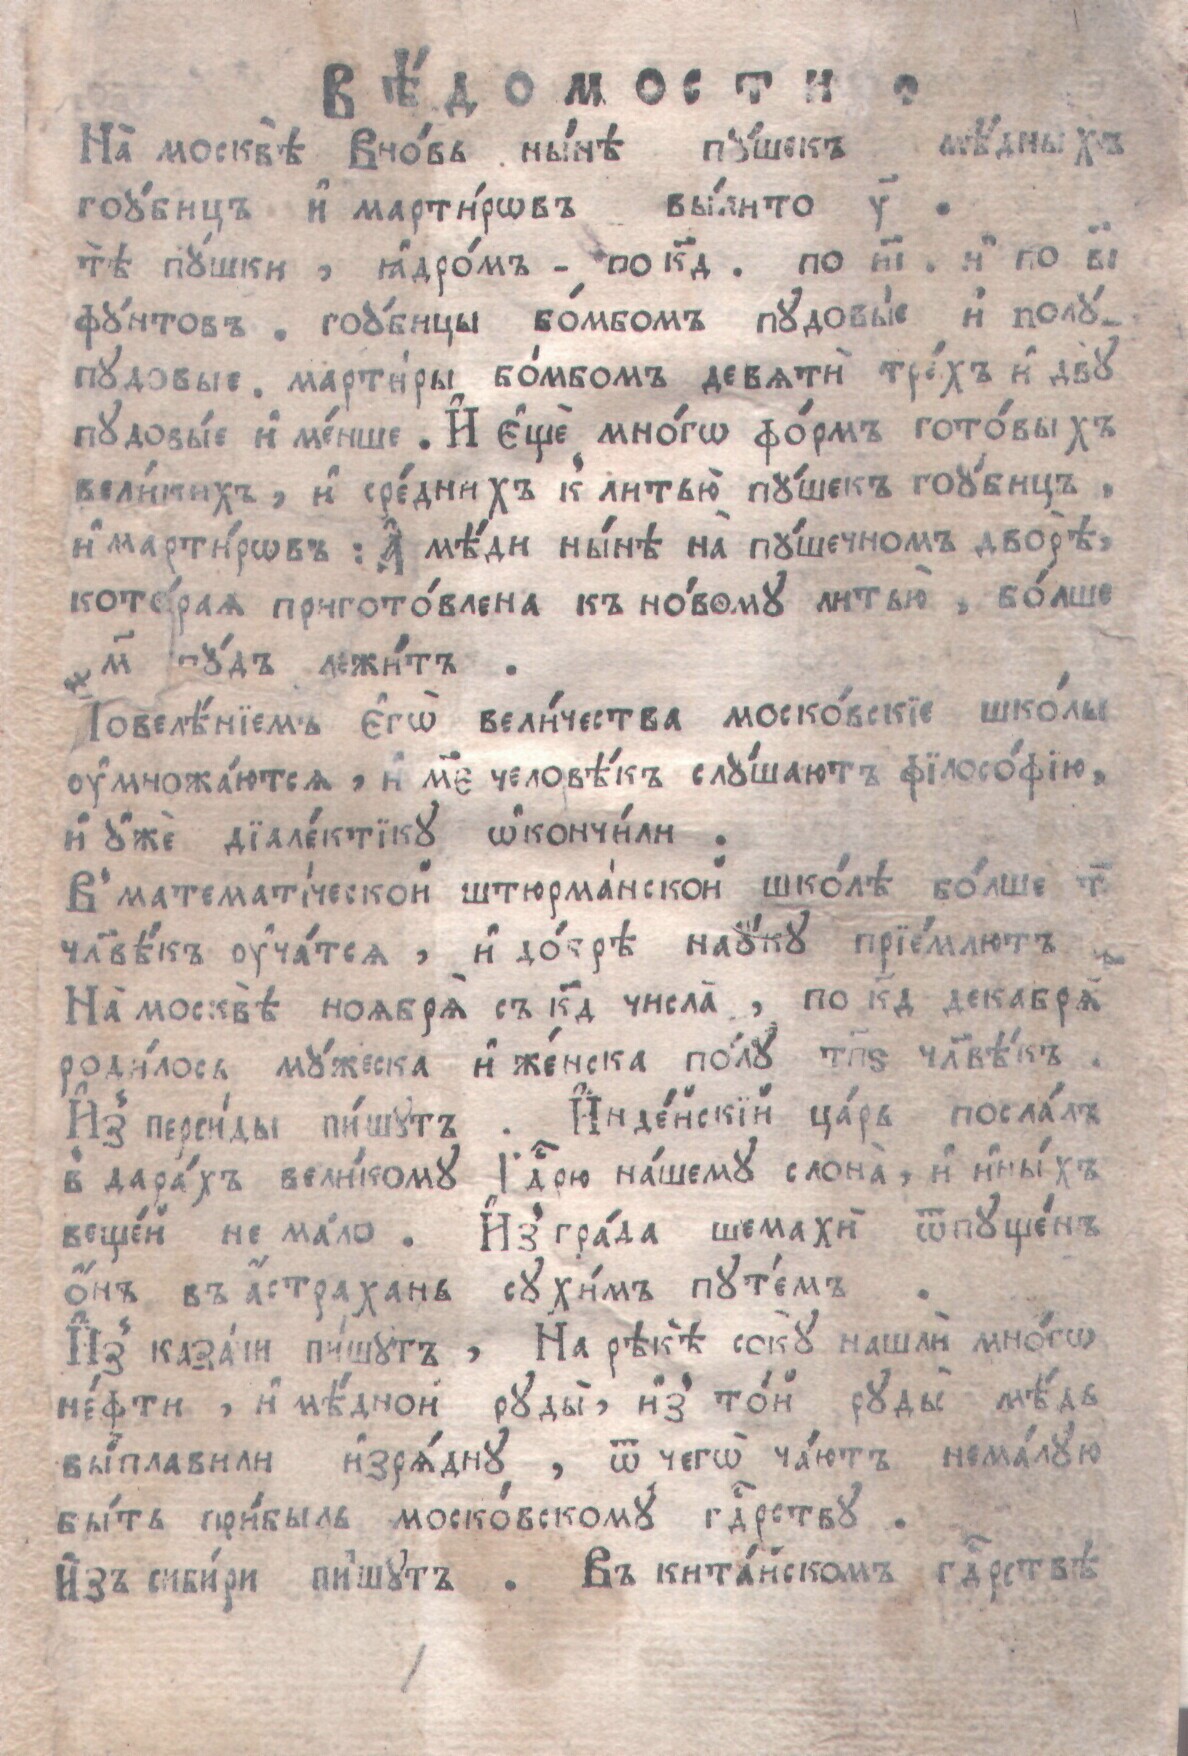 Вѣ́домости .
На̀ москвѣ̀ вно́вь ны́нѣ пꙋ́шекъ мѣ́дныхъ
гоꙋ́бицъ и҆ марти́рѡвъ вы́лито у҃ .
тѣ̀ пꙋ́шки , ꙗ҆дро́мъ - по к҃д . по и҃і . и҆ по в҃і
фꙋ́нтовъ . гоꙋ́бицы бо́мбомъ пꙋдовы́е и҆ полꙋ́-
пꙋдовые . марти́ры бо́мбомъ девѧтѝ тре́хъ и҆ двꙋ́
пꙋдовы́е и҆ ме́нше . И҆ є҆щѐ мно́гѡ фо́рмъ гото́выхъ
вели́кихъ , и҆ сре́днихъ к̾ литью̀ пꙋ́шекъ гоꙋ́бицъ ,
и҆ марти́рѡвъ : А҆ мѣ́ди ны́нѣ на̀ пꙋ́шечномъ дворѣ̀,
кото́раѧ пригото́влена къ но́вомꙋ литью̀ , бо́лше
҂м҃ пꙋ́дъ лежи́тъ .
Повелѣ́нїемъ є҆гѡ̀ вели́чества моско́вскїе шко́лы
оу҆множа́ютсѧ , и҆ м҃є человѣ́къ слꙋ́шаютъ фїлосо́фїю,
и҆ ᲂу҆жѐ дїале́ктїкꙋ ѡ҆кончи́ли .
В̾ математі́ческой штюрма́нской шко́лѣ бо́лше т҃
чл҃вѣ́къ оу҆ча́тсѧ , и҆ до́брѣ наꙋ́кꙋ прїе́млютъ .
На̀ москвѣ̀ ноѧбрѧ̀ съ к҃д числа̀ , по к҃д декабрѧ̀
роди́лось мꙋ́жеска и҆ же́нска по́лꙋ т҃пѕ чл҃вѣ́къ .
И҆з̾ перси́ды пи́шꙋтъ . И҆нде́йскїй ца́рь посла́лъ
в̾ дара́хъ вели́комꙋ Гдⷭ҇рю на́шемꙋ слона̀ , и҆ и҆ны́хъ
веще́й не ма́ло . И҆з̾ гра́да шемахѝ ѿпꙋще́нъ
ѻ҆́нъ въ а҆́страхань сꙋхи́мъ пꙋте́мъ .
И҆з̾ каза́ни пи́шꙋтъ , На рѣкѣ̀ сокꙋ̀ нашлѝ мно́гѡ
не́фти , и҆ мѣ́дной рꙋды̀, и҆з̾ то́й рꙋды̀ мѣ́дь
вы́плавили и҆зрѧ́днꙋ , ѿ чегѡ̀ ча́ютъ нема́лꙋю
бы́ть при́быль моско́вскомꙋ гдⷭ҇рствꙋ .
И҆зъ сиби́ри пи́шꙋтъ . Въ кита́йскомъ гдⷭ҇рствѣ